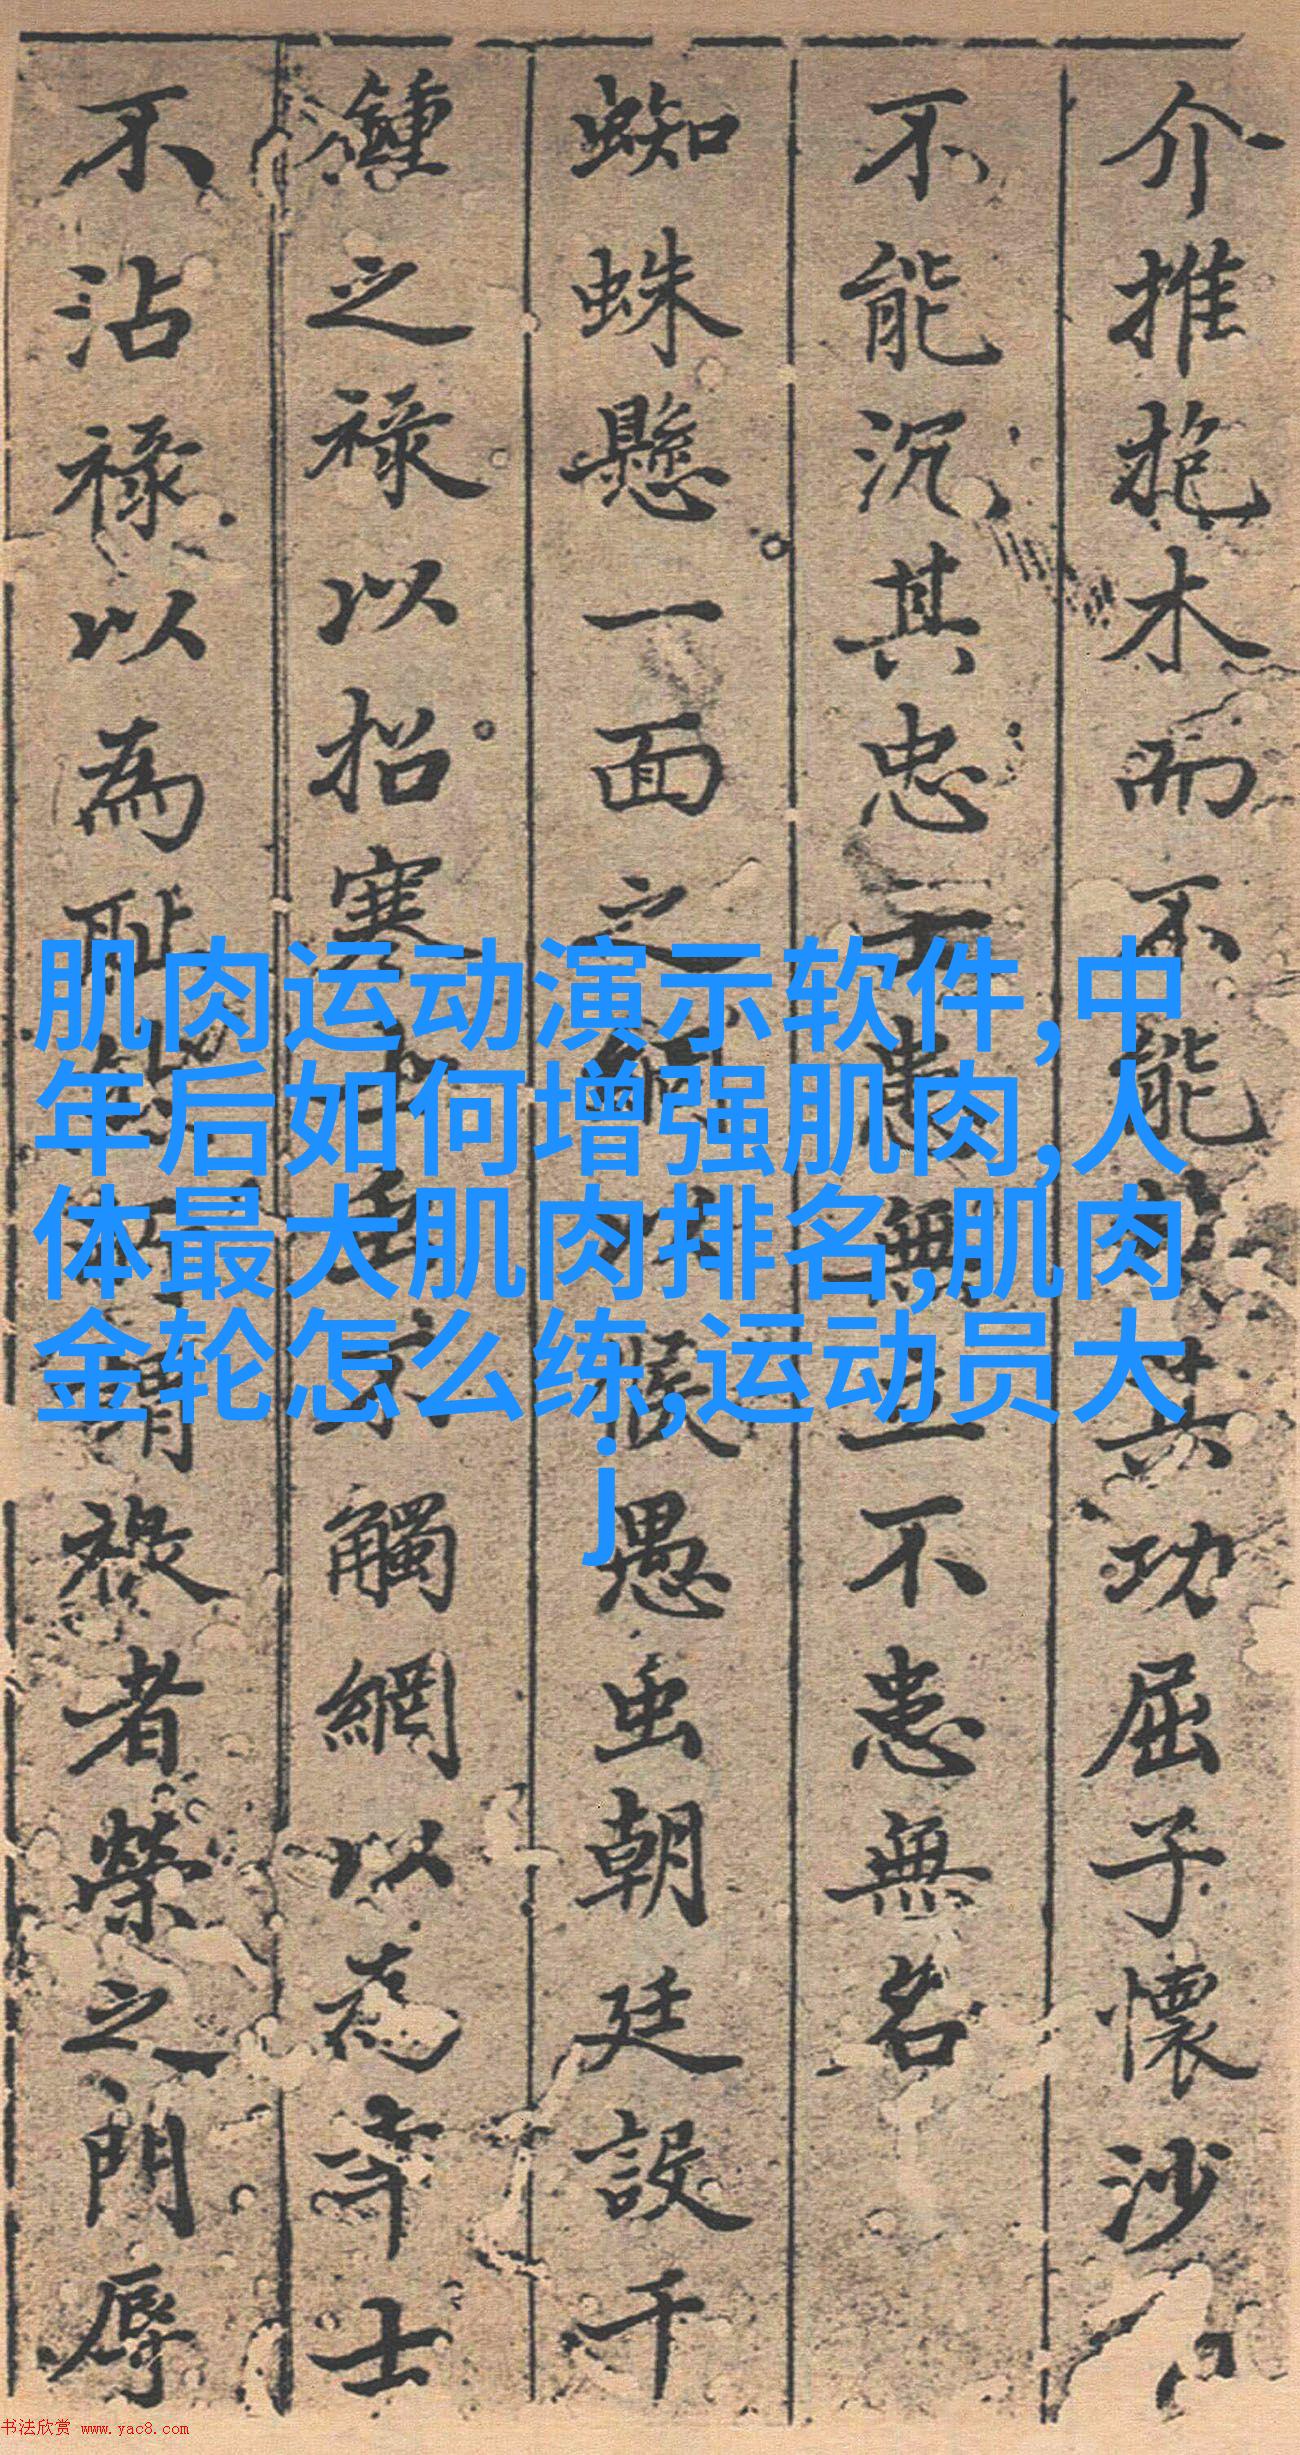 介推抱木而不能其功屈子懷沙
不能沉其忠不患無立不患無名
蜘蛛懸一面之網以愚虫朝廷設千
鍾之祿以招寒觸網以為士
不沾祿以為恥謂祿者榮之門辱
肌肉运动演示软件,中
年后如何增强肌肉,人
体最大肌肉排名,肌肉
金轮怎么练,运动员大
j
书法欣赏 www.yac8.com